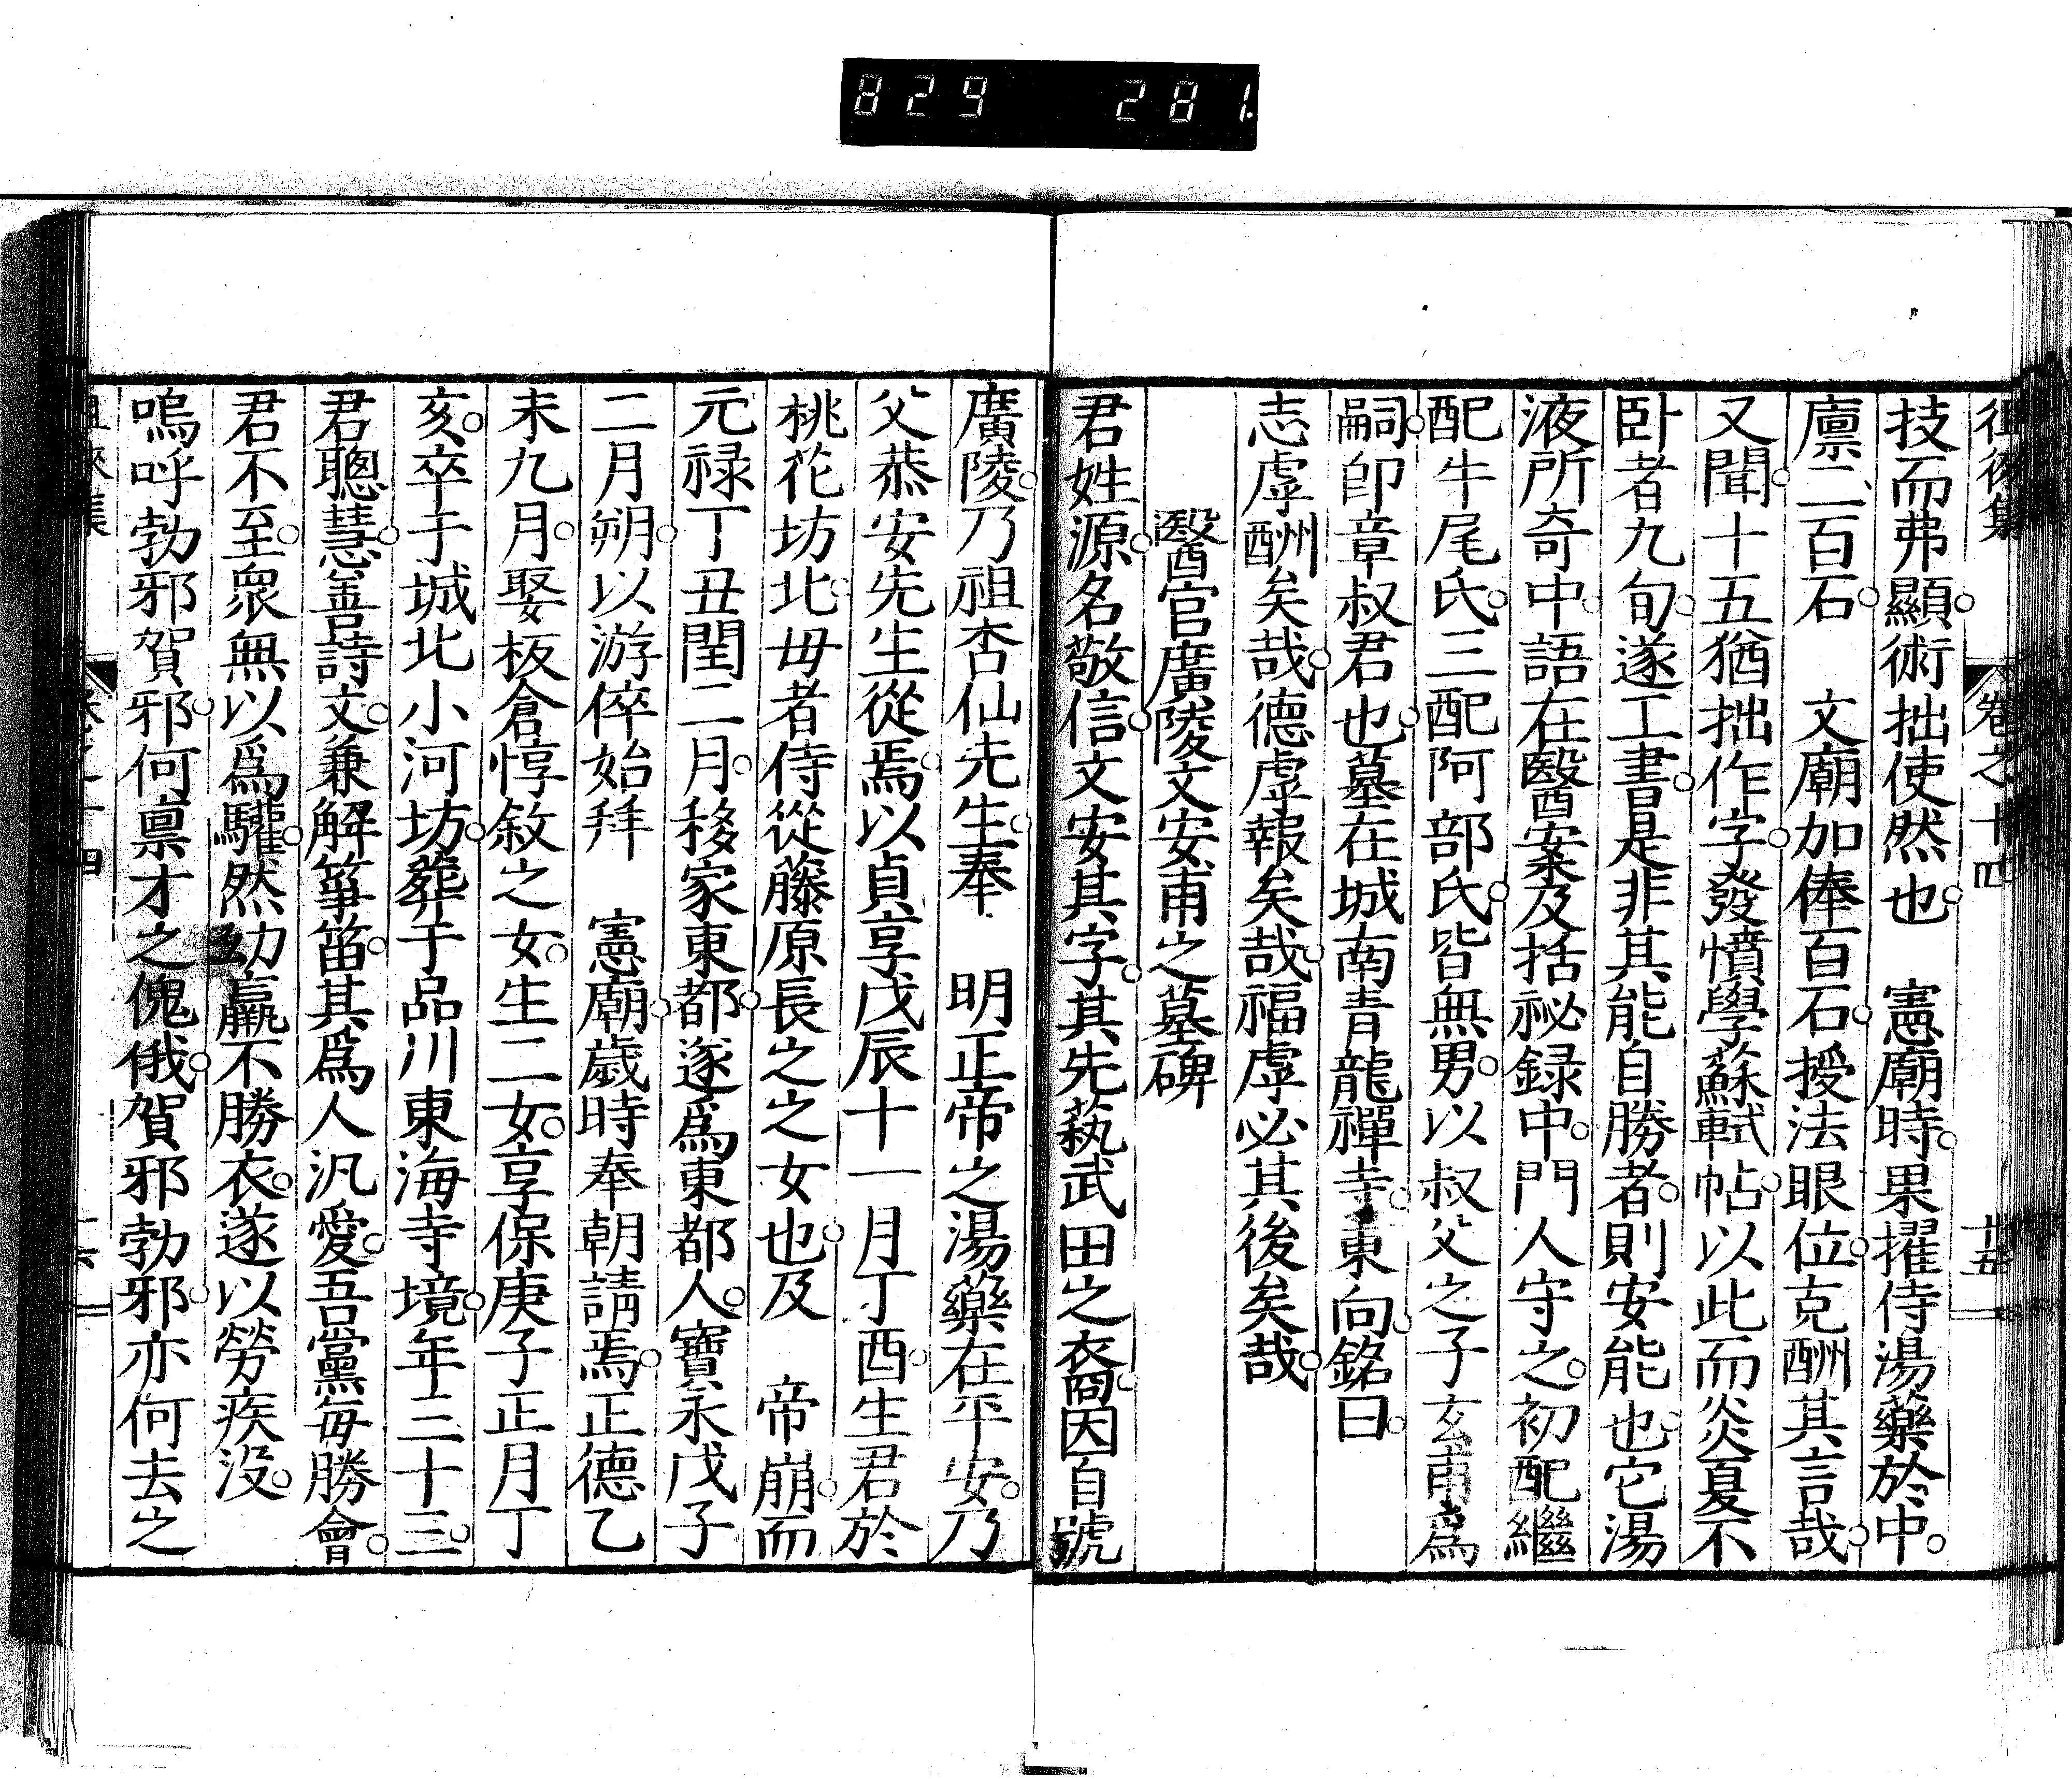 829 281.
徂徠集 卷之十四 十五
技而弗顯。術拙使然也。 憲廟時。果擢侍湯藥於中。
廩二百石。 文廟加俸百石。授法眼位。克酬其言哉。
又聞。十五猶拙作字。發憤學蘇軾帖。以此而炎夏不
臥者九旬。遂工書。是非其能自勝者。則安能也。它湯
液所奇中。語在醫案及括祕録中。門人守之。初配繼
配牛尾氏。三配阿部氏。皆無男。以叔父之子玄甫爲
嗣。卽章叔君也。墓在城南青龍禪寺。東向。銘曰。
志虛酬矣哉。德虛報矣哉。福虛必其後矣哉。
醫官廣陵文安甫之墓碑
君姓源。名敬信。文安其字。其先蓺武田之裔。因自號
廣陵。乃祖杏仙先生。奉 明正帝之湯藥在平安。乃
父恭安先生從焉。以貞享戊辰十一月丁酉。生君於
桃花坊北。毋者侍從藤原長之之女也。及 帝崩。而
元禄丁丑閏二月。移家東都。遂爲東都人。寶永戊子
二月朔。以游倅始拜 憲廟。歲時奉朝請焉。正德乙
未九月。娶板倉惇敘之女。生二女。享保庚子正月丁
亥。卒于城北小河坊。葬于品川東海寺境。年三十三。
君聰慧。善詩文。兼解箏笛。其爲人汎愛。吾黨每勝會。
君不至。衆無以爲驩。然幼羸不勝衣。遂以勞疾没。
嗚呼勃邪賀邪。何禀才之傀俄。賀邪勃邪。亦何去之
徂徠集 卷之十四 十六